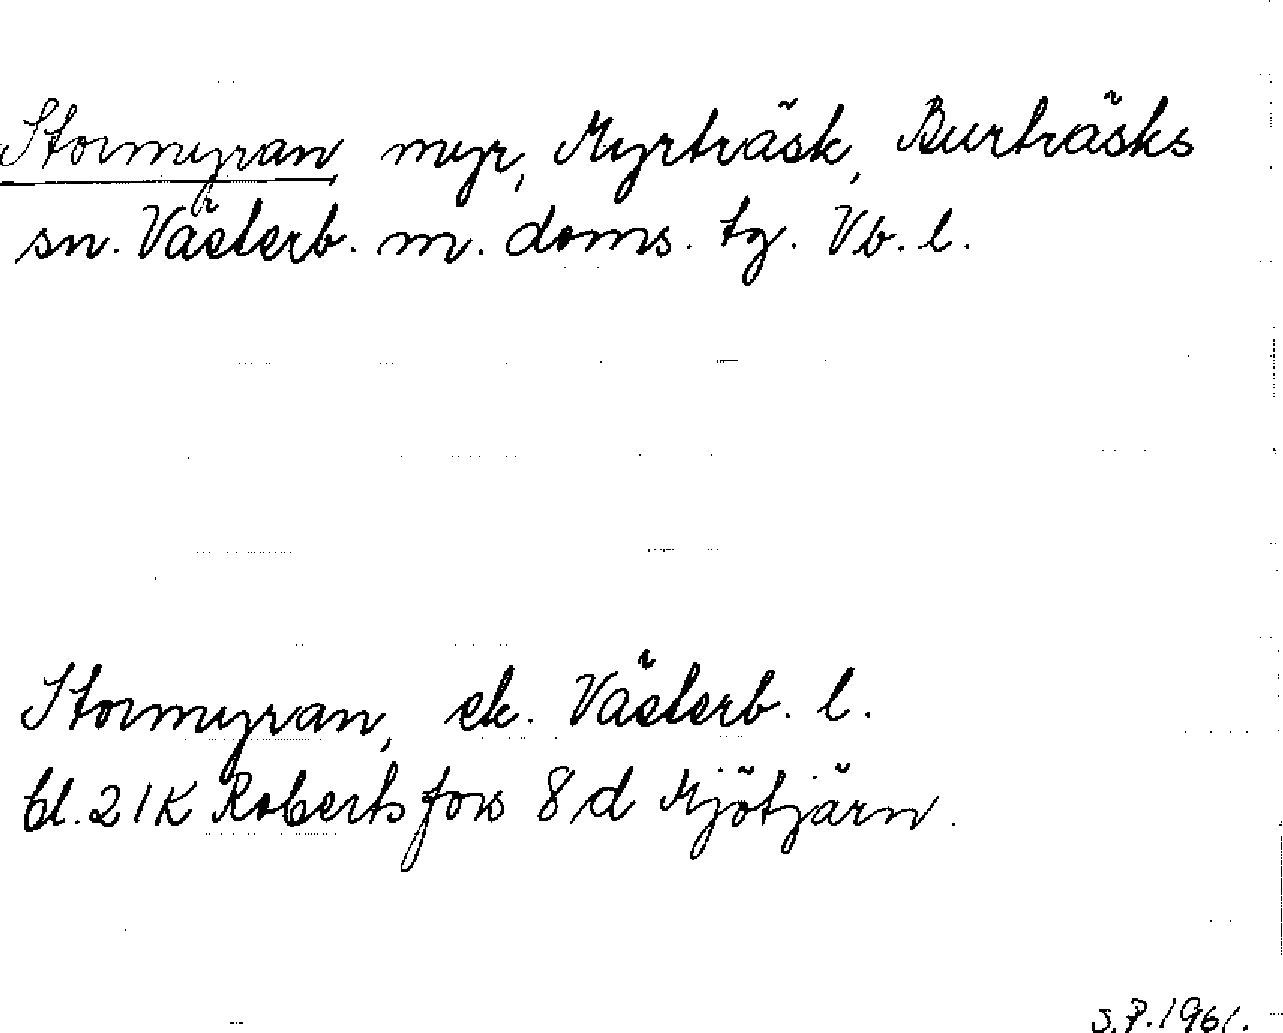 Stormyran myr, Myrträsk, Burträsks
sn. Västerb. m. doms. tg. Vb. l.
Stormyran, ek. Västerb. l.
bl. 21K Robertsfors 8d Mjötjärn.
S.P. 1961.